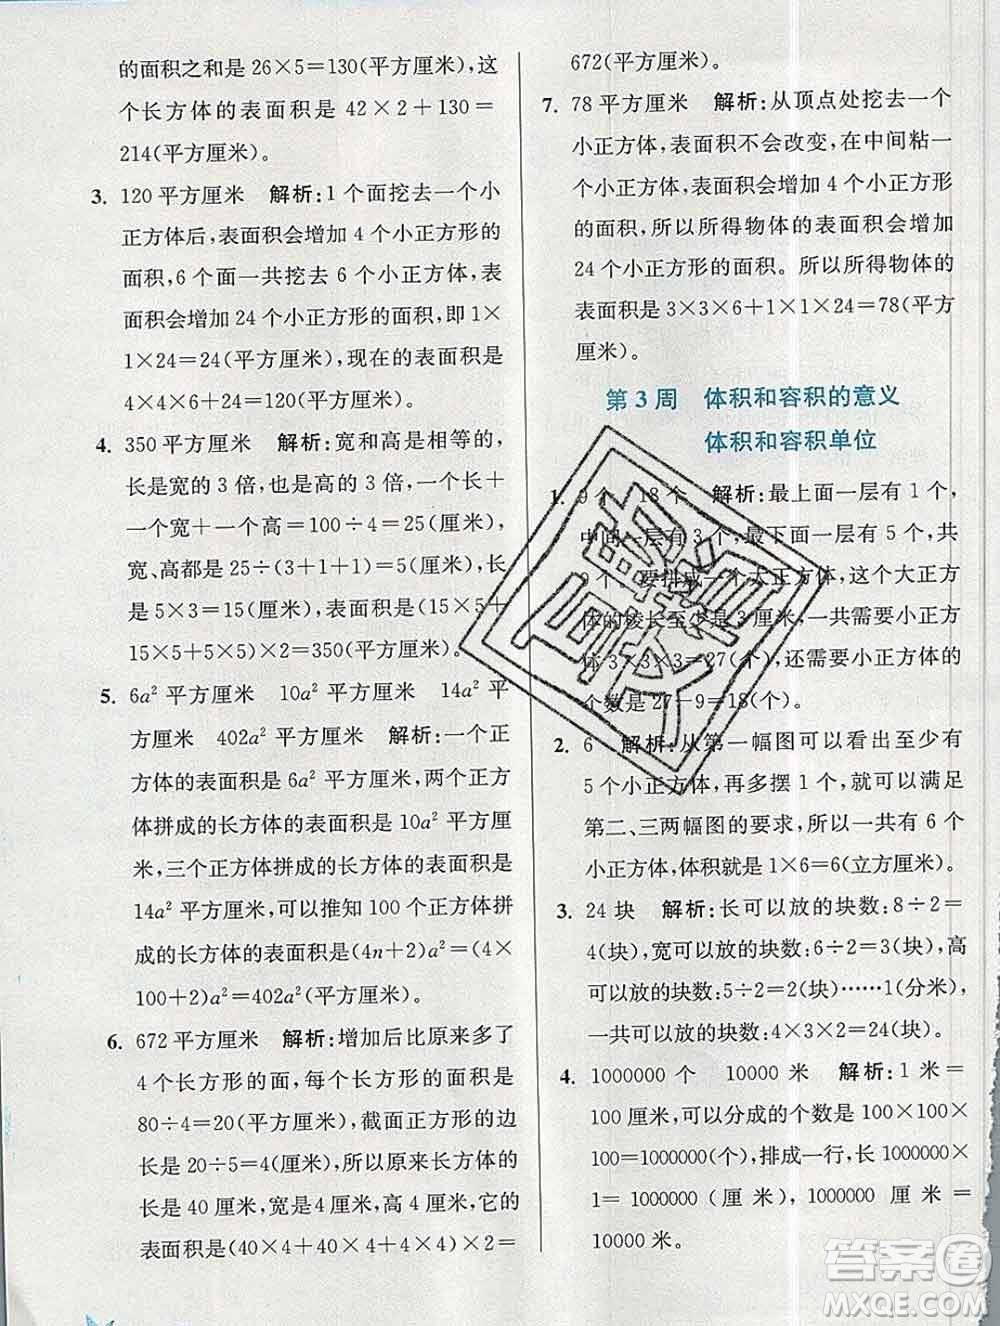 的面积之和是 26×5=130(平方厘米),这
个长方体的表面积是 42×2+130=
214(平方厘米)。
3. 120 平方厘米 解析:1 个面挖去一个小
正方体后,表面积会增加 4 个小正方形的
面积,6 个面一共挖去 6 个小正方体,表
面积会增加 24 个小正方形的面积,即 1×
1×24=24(平方厘米),现在的表面积是
4×4×6+24=120(平方厘米)。
4. 350 平方厘米 解析:宽和高是相等的,
长是宽的 3 倍,也是高的 3 倍,一个长+
一个宽+一个高=100÷4=25(厘米),
宽、高都是 25÷(3+1+1)=5(厘米),长
是 5×3=15(厘米),表面积是(15×5+
15×5+5×5)×2=350(平方厘米)。
5. 6a² 平方厘米 10a² 平方厘米 14a² 平
方厘米 402a² 平方厘米 解析:一个正
方体的表面积是 6a² 平方厘米,两个正方
体拼成的长方体的表面积是 10a² 平方厘
米,三个正方体拼成的长方体的表面积是
14a² 平方厘米,可以推知 100 个正方体拼
成的长方体的表面积是(4n+2)a²=(4×
100+2)a²=402a²(平方厘米)。
6. 672 平方厘米 解析:增加后比原来多了
4 个长方形的面,每个长方形的面积是
80÷4=20(平方厘米),截面正方形的边
长是 20÷5=4(厘米),所以原来长方体的
长是 40 厘米,宽是 4 厘米,高 4 厘米,它的
表面积是(40×4+40×4+4×4)×2=
672(平方厘米)。
7. 78 平方厘米 解析:从顶点处挖去一个
小正方体,表面积不会改变,在中间粘一
个小正方体,表面积会增加 4 个小正方形
的面积,所以所得物体的表面积会增加
24 个小正方形的面积。所以所得物体的
表面积是 3×3×6+1×1×24=78(平方
厘米)。
第 3 周 体积和容积的意义
体积和容积单位
1. 9 个 18 个 解析:最上面一层有 1 个,
中间一层有 3 个,最下面一层有 5 个,共
9 个。要拼成一个大正方体,这个大正方
体的棱长至少是 3 厘米,一共需要小正方
体 3×3×3=27(个),还需要小正方体的
个数是 27−9=18(个)。
2. 6 解析:从第一幅图可以看出至少有
5 个小正方体,再多摆 1 个,就可以满足
第二、三两幅图的要求,所以一共有 6 个
小正方体,体积就是 1×6=6(立方厘米)。
3. 24 块 解析:长可以放的块数:8÷2=
4(块),宽可以放的块数:6÷2=3(块),高
可以放的块数:5÷2=2(块)……1(分米),
一共可以放的块数:4×3×2=24(块)。
4. 1000000 个 10000 米 解析:1 米=
100 厘米,可以分成的个数是 100×100×
100=1000000(个),排成一行,长 1000000×
1=1000000(厘米),1000000 厘米=
10000 米。
答案圈
MXQE.COM